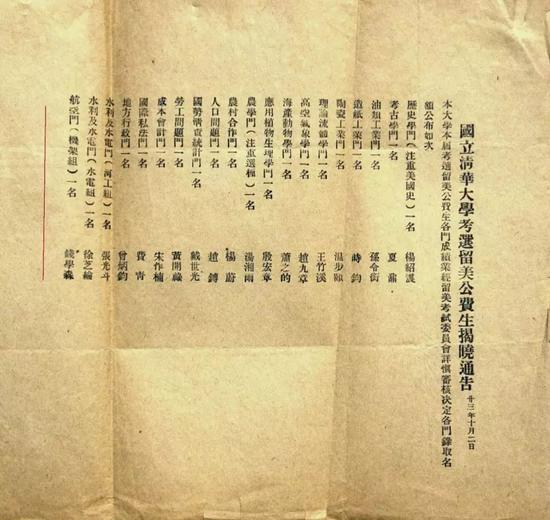 國立清華大學考選留美公費生揭曉通告 廿三年十月二日
本大學本屆考選留美公費生各門成績業經留美考試委員會詳慎審核決定各門錄取名
額公布如次
歷史學門(注重美國史)一名 楊紹震
考古學門一名 夏鼐
油類工業門一名 孫令衔
造紙工業門一名 時鈞
陶瓷工業門一名 温步頤
理論流體學門一名 王竹溪
高空氣象學門一名 趙九章
海產動物學門一名 蕭之的
應用植物生理學門一名 殷宏章
農學門(注重選種)一名 湯湘雨
農村合作門一名 楊蔚
人口問題門一名 趙鎛
國勢清查統計門一名 戴世光
勞工問題門一名 黃開祿
成本會計門一名 宋作楠
國際私法門一名 費青
地方行政門一名 曾炳鈞
水利及水電門(河工組)一名 張光斗
水利及水電門(水電組)一名 徐芝綸
航空門(機架組)一名 錢學森